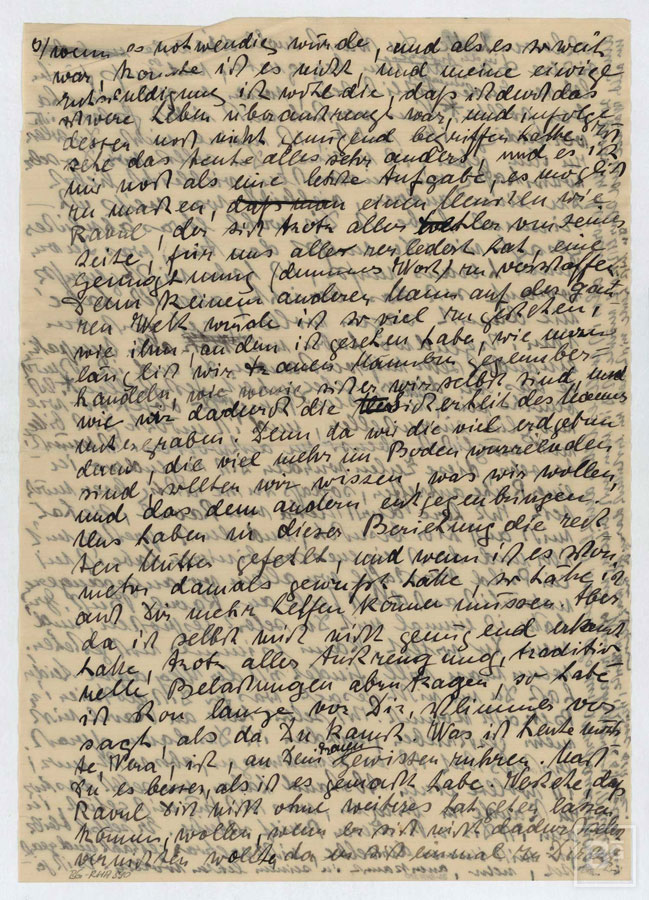 5/ wenn es notwendig würde, und als es so weit
war, konnte ich es nicht, und meine einzige
Entschuldigung ist wohl die, daß ich durch das
schwere Leben überanstrengt war, und infolge
dessen noch nicht genügend begriffen hatte. Ich
sehe das heute alles sehr anders, und es ist
mir noch als eine letzte Aufgabe, es möglich
zu machen, daß man einem Menschen wie
Raoul, der sich trotz aller Fehler von seiner
Seite, für uns alle hat, eine
Genugtuung (dummes Wort) zu verschaffen.
Denn keinem anderen Mann auf der gan-
zen Welt würde ich so viel zugestehen,
wie ihm, an dem ich gesehen habe, wie unzu-
länglich wir Frauen Männern gegenüber-
handeln, wie wenig sicher wir selbst sind, und
wie wir dadurch die Sicherheit des Mannes
untergraben. Denn da wir die viel erdgebun-
denen, die viel mehr im Boden wurzelnden
sind, sollten wir wissen, was wir wollen,
und das dem andern entgegenbringen.
Uns haben in dieser Beziehung die rech-
ten Mütter gefehlt, und wenn ich es schon
mehr damals gewußt hätte, so hätte ich
auch Dir mehr helfen können müssen. Aber
da ich selbst mich nicht genügend erkannt
hatte, trotz aller Anstrengung, traditio-
nelle Belastungen abzutragen, so habe
ich schon lange vor Dir, schlimmer ver-
sagt, als da Du kamst. Was ich heute möch-
te, Vera, ist, an Dein Frauen gewissen rühren. Mach
Du es besser, als ich es gemacht habe. Verstehe daß
Raoul Dich nicht ohne weiteres hat gehen lassen
können, wollen, wenn er sich nicht dadurch
vernichten wollte, da er sich einmal zu Dir
86-RHA 590